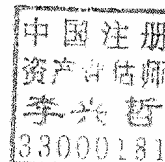 中国注册
资产评估师
李兴哲
3300018